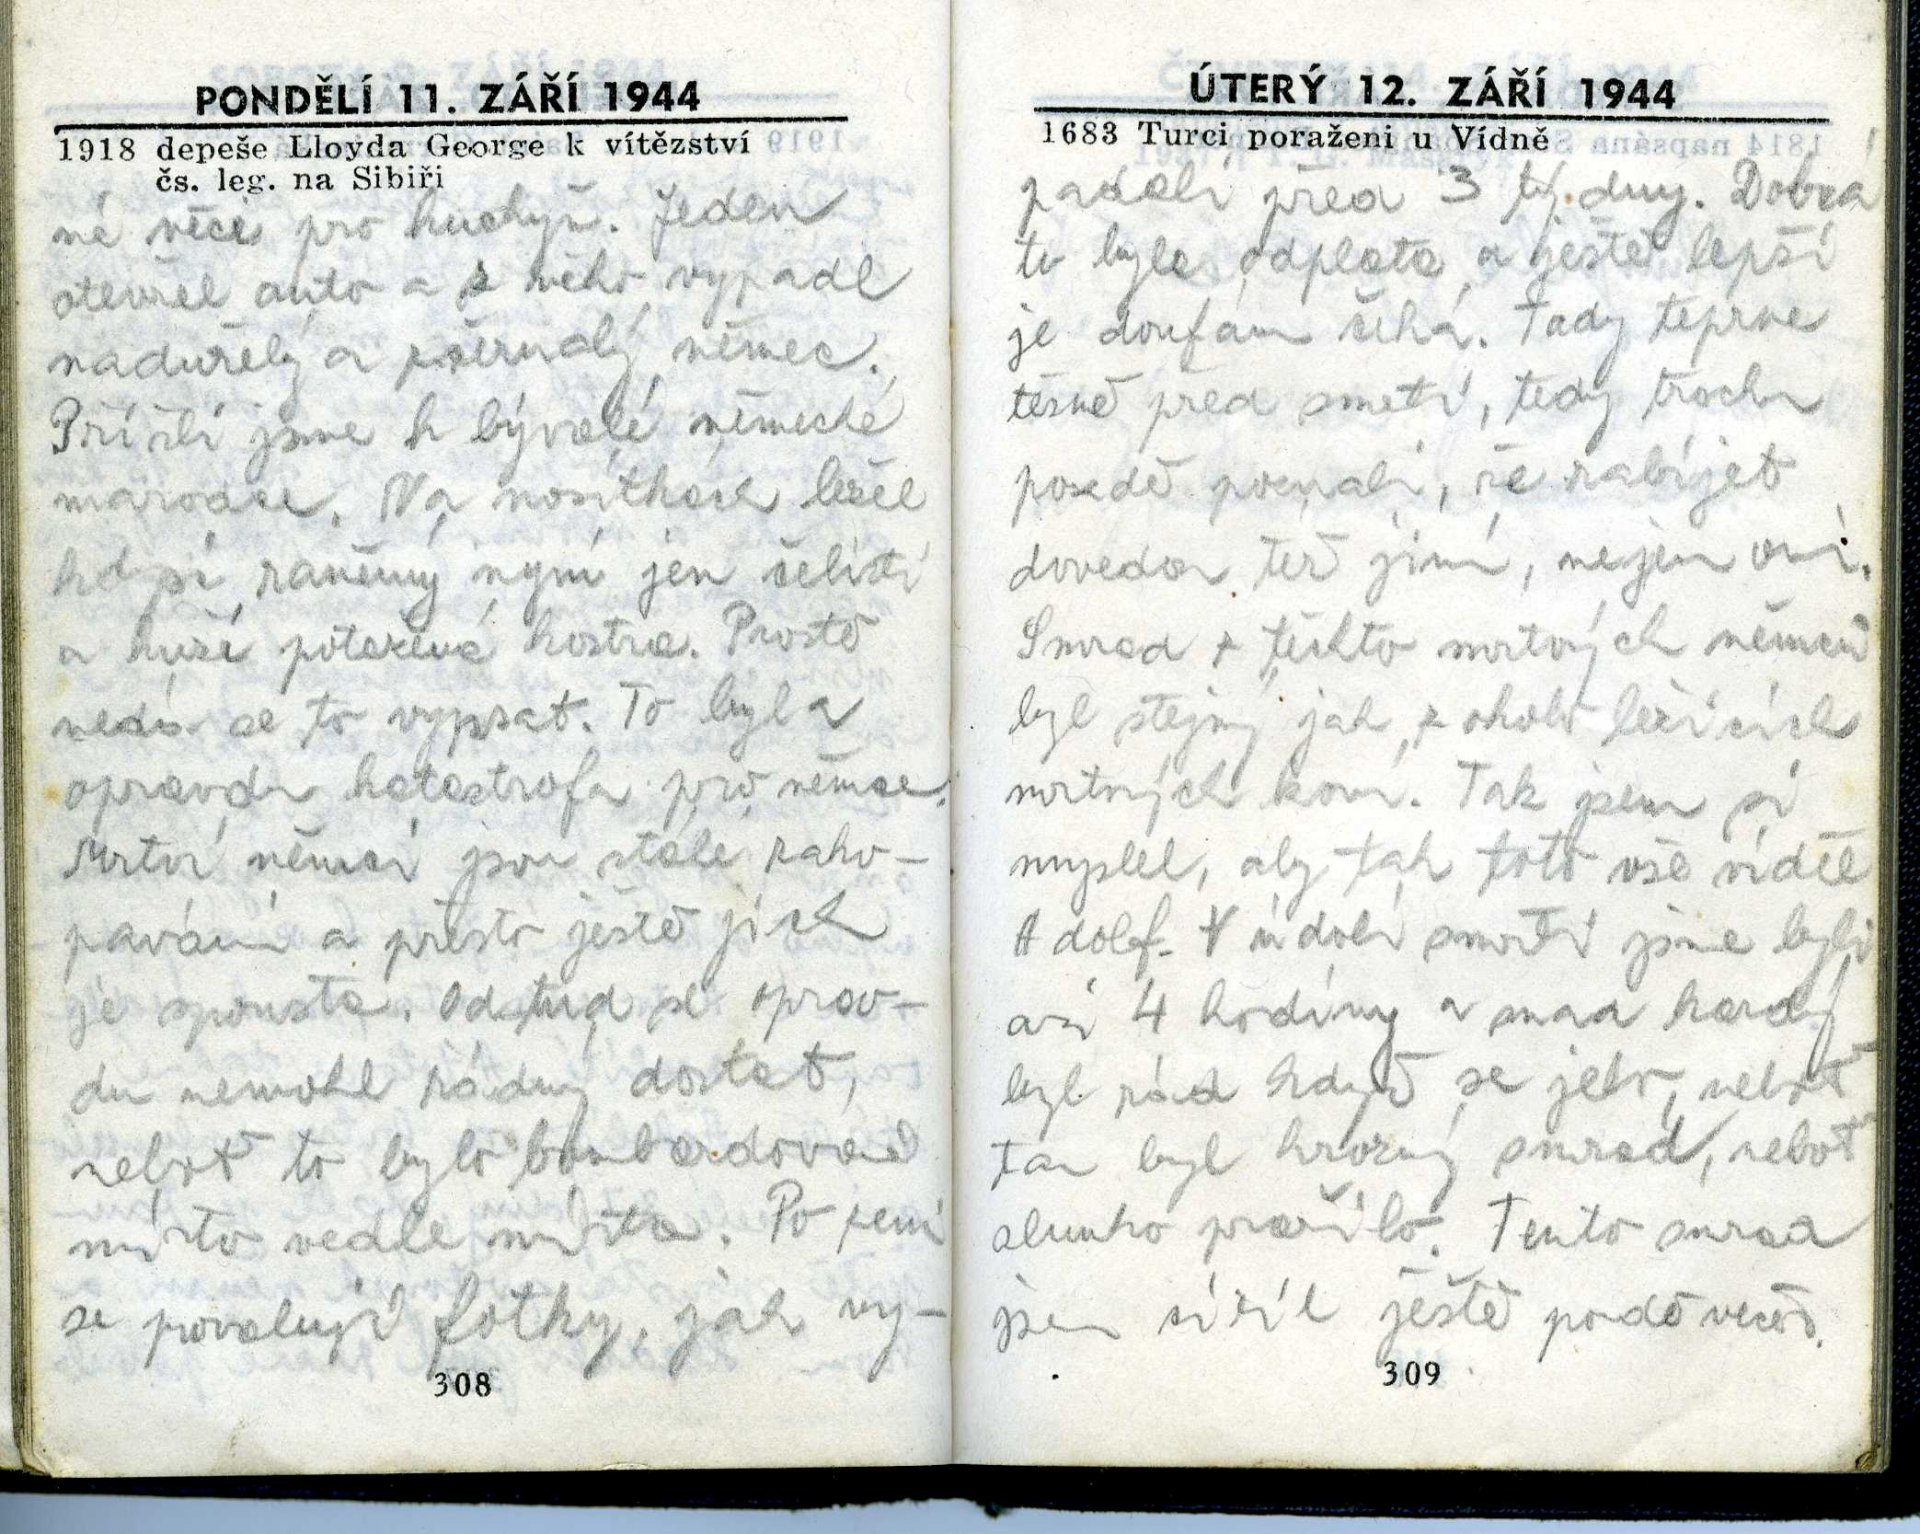 PONDĚLÍ 11. ZÁŘÍ 1944
1918 depeše Lloyda George k vítězství
čs. leg. na Sibiři
né věci pro kuchyň. Jeden
otevřel auto a z něho vypadl
naduřelý a zčernalý němec.
Příšli jsme k bývalé německé
marodce. Na nosítkách ležel
kdysi raněný nyní jen čelisti
a kůží potažená kostra. Prostě
nedá se to vypsat. To byla
opravdu katastrofa pro němce.
Mrtví němci jsou stále zako-
pávání a přesto ještě jich
je spousta. Odtud se oprav-
du nemohl žádný dostat,
neboť to bylo bombardované
místo vedle místa. Po zemi
se povalují fotky, jak vy-
308
ÚTERÝ 12. ZÁŘÍ 1944
1683 Turci poraženi u Vídně
padali před 3 týdny. Dobrá
to byla odplata a ještě lepší
je doufám čeká. Tady teprve
těsně před smrtí, tedy trochu
pozdě poznali, že zabíjet
dovedou též jiní, nejen oni.
Smrad z těchto mrtvých němců
byl stejný jak z okolo ležících
mrtvých koní. Tak jsem si
myslel, aby tak toto vše viděl
Adolf. V údolí smrti jsme byli
asi 4 hodiny a snad každý
byl rád když se jelo, neboť
tam byl hrozný smrad, neboť
slunko pražilo. Tento smrad
jsem cítil ještě pozdě večer.
309